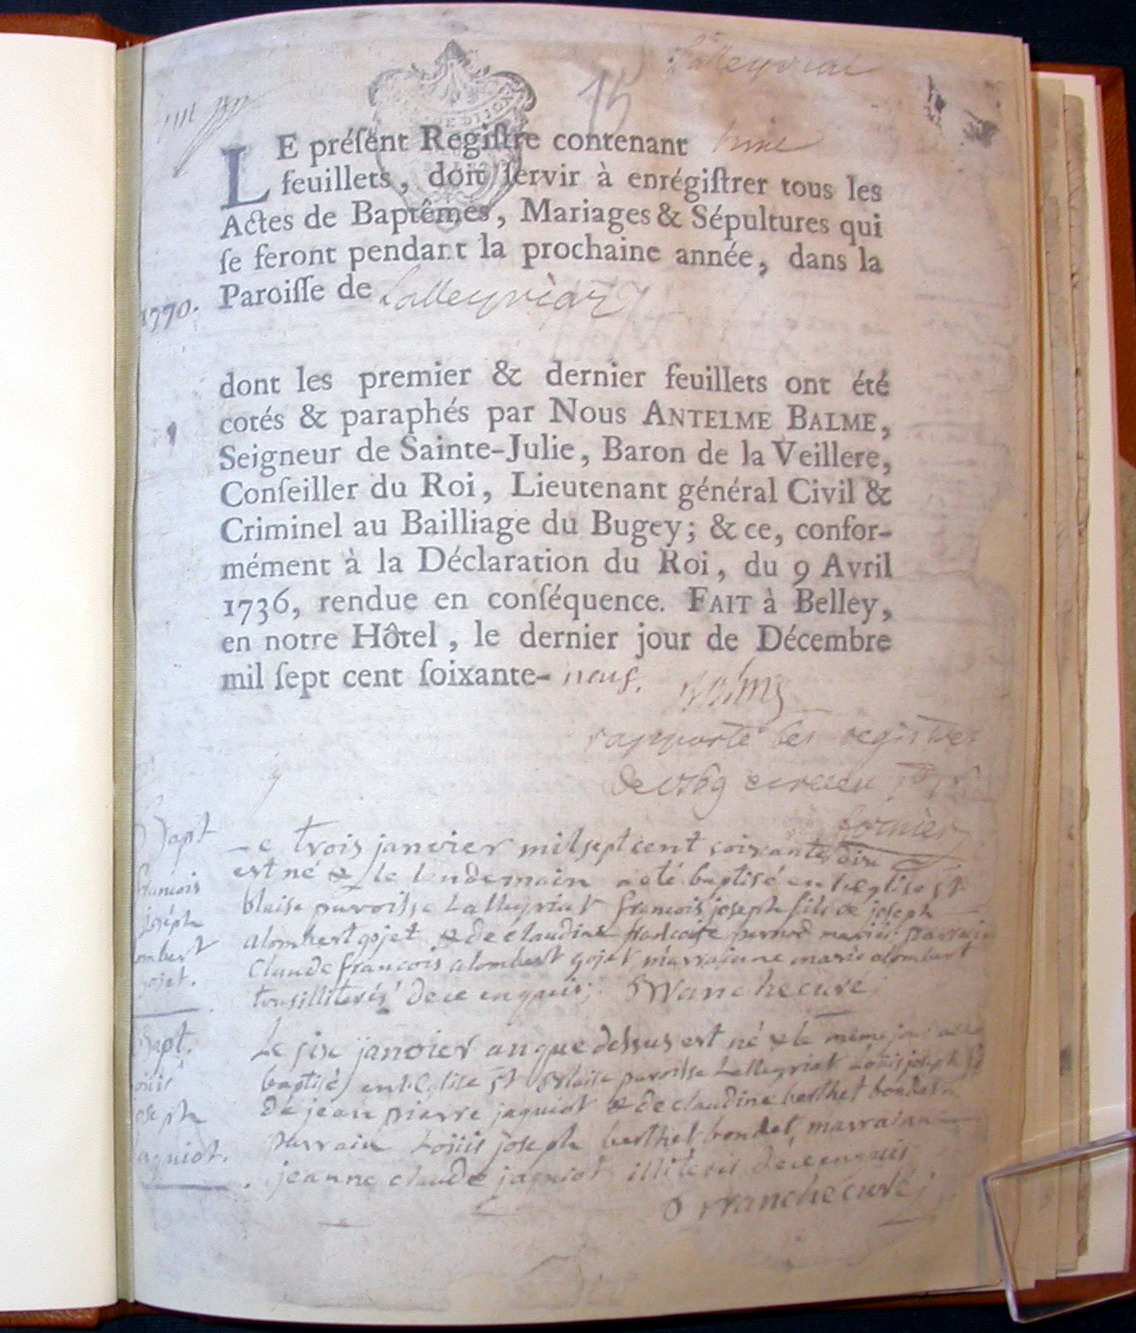 Lalleyriat
15
LE préſent Regiſtre contenant
feuillets, doit ſervir à enrégiſtrer tous les
Actes de Baptêmes, Mariages & Sépultures qui
ſe feront pendant la prochaine année, dans la
1770. Paroiſſe de Lalleyriat
dont les premier & dernier feuillets ont été
cotés & paraphés par Nous ANTELME BALME,
Seigneur de Sainte-Julie, Baron de la Veillere,
Conſeiller du Roi, Lieutenant général Civil &
Criminel au Bailliage du Bugey; & ce, confor-
mément à la Déclaration du Roi, du 9 Avril
1736, rendue en conſéquence. FAIT à Belley,
en notre Hôtel, le dernier jour de Décembre
mil ſept cent ſoixante-neuf. Balme
rapporté les registres
de 1769
Bapt
francois
joséph
ombert
gojet.
Le trois janvier mil sept cent soixante dix
est né & le lendemain a eté baptisé en l'eglise st
blaise paroisse Lalleyriat francois joseph fils de joseph
alombert gojet & de claudine mariés parrain
Claude francois alombert gojet marrainne marie alombert
tous illiterés de ce enquis;
Bapt.
loüis
joseph
jaquiot.
Le six janvier an que dessus est né & le meme jour
baptisé en l'Eglise st Blaise paroisse Lalleyriat Loüis joseph
de jean pierre jaquiot & de claudine berthet bondet
parrain Loüis joseph berthet bondet, marrainne
jeanne claude jaquiot illiterés de ce enquis